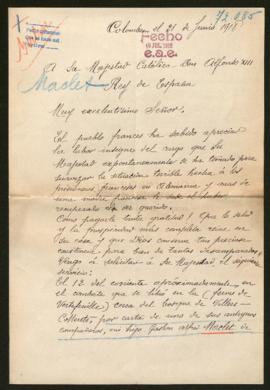 Colombes el 21 de Junio 1918
72.985
Hecho
10 JUL 1918
e.a.e.
A Su Majestad Católica Don Alfonso XIII
Maclet
Rey de España
Muy excelentísimo Señor,
El pueblo frances ha sabido apreciar
la labor insigne del cargo que Su
Majestad espontaneamente se ha tomado para
la situación terrible hecha á los
prisioneros franceses en Alemania y mas de
una madre francesa le debe el haber
recuperado su ser querido.
Como pagarle tanta gratitud! Que la salud
y la prosperidad mas completa reine en
su casa, y que Dios conserve Su preciosa
existencia para bien de tantos desamparados!
Vengo á solicitar á Su Majestad el siguiente
servicio:
El 12 del corriente aproximadamente, en
el combate que se libró en la (ferme de
Vertefeuille) cerca del bosque de Villers-
Cotterets, por carta de uno de sus antiguos
compañeros, mi hijo Gaston Maclet de